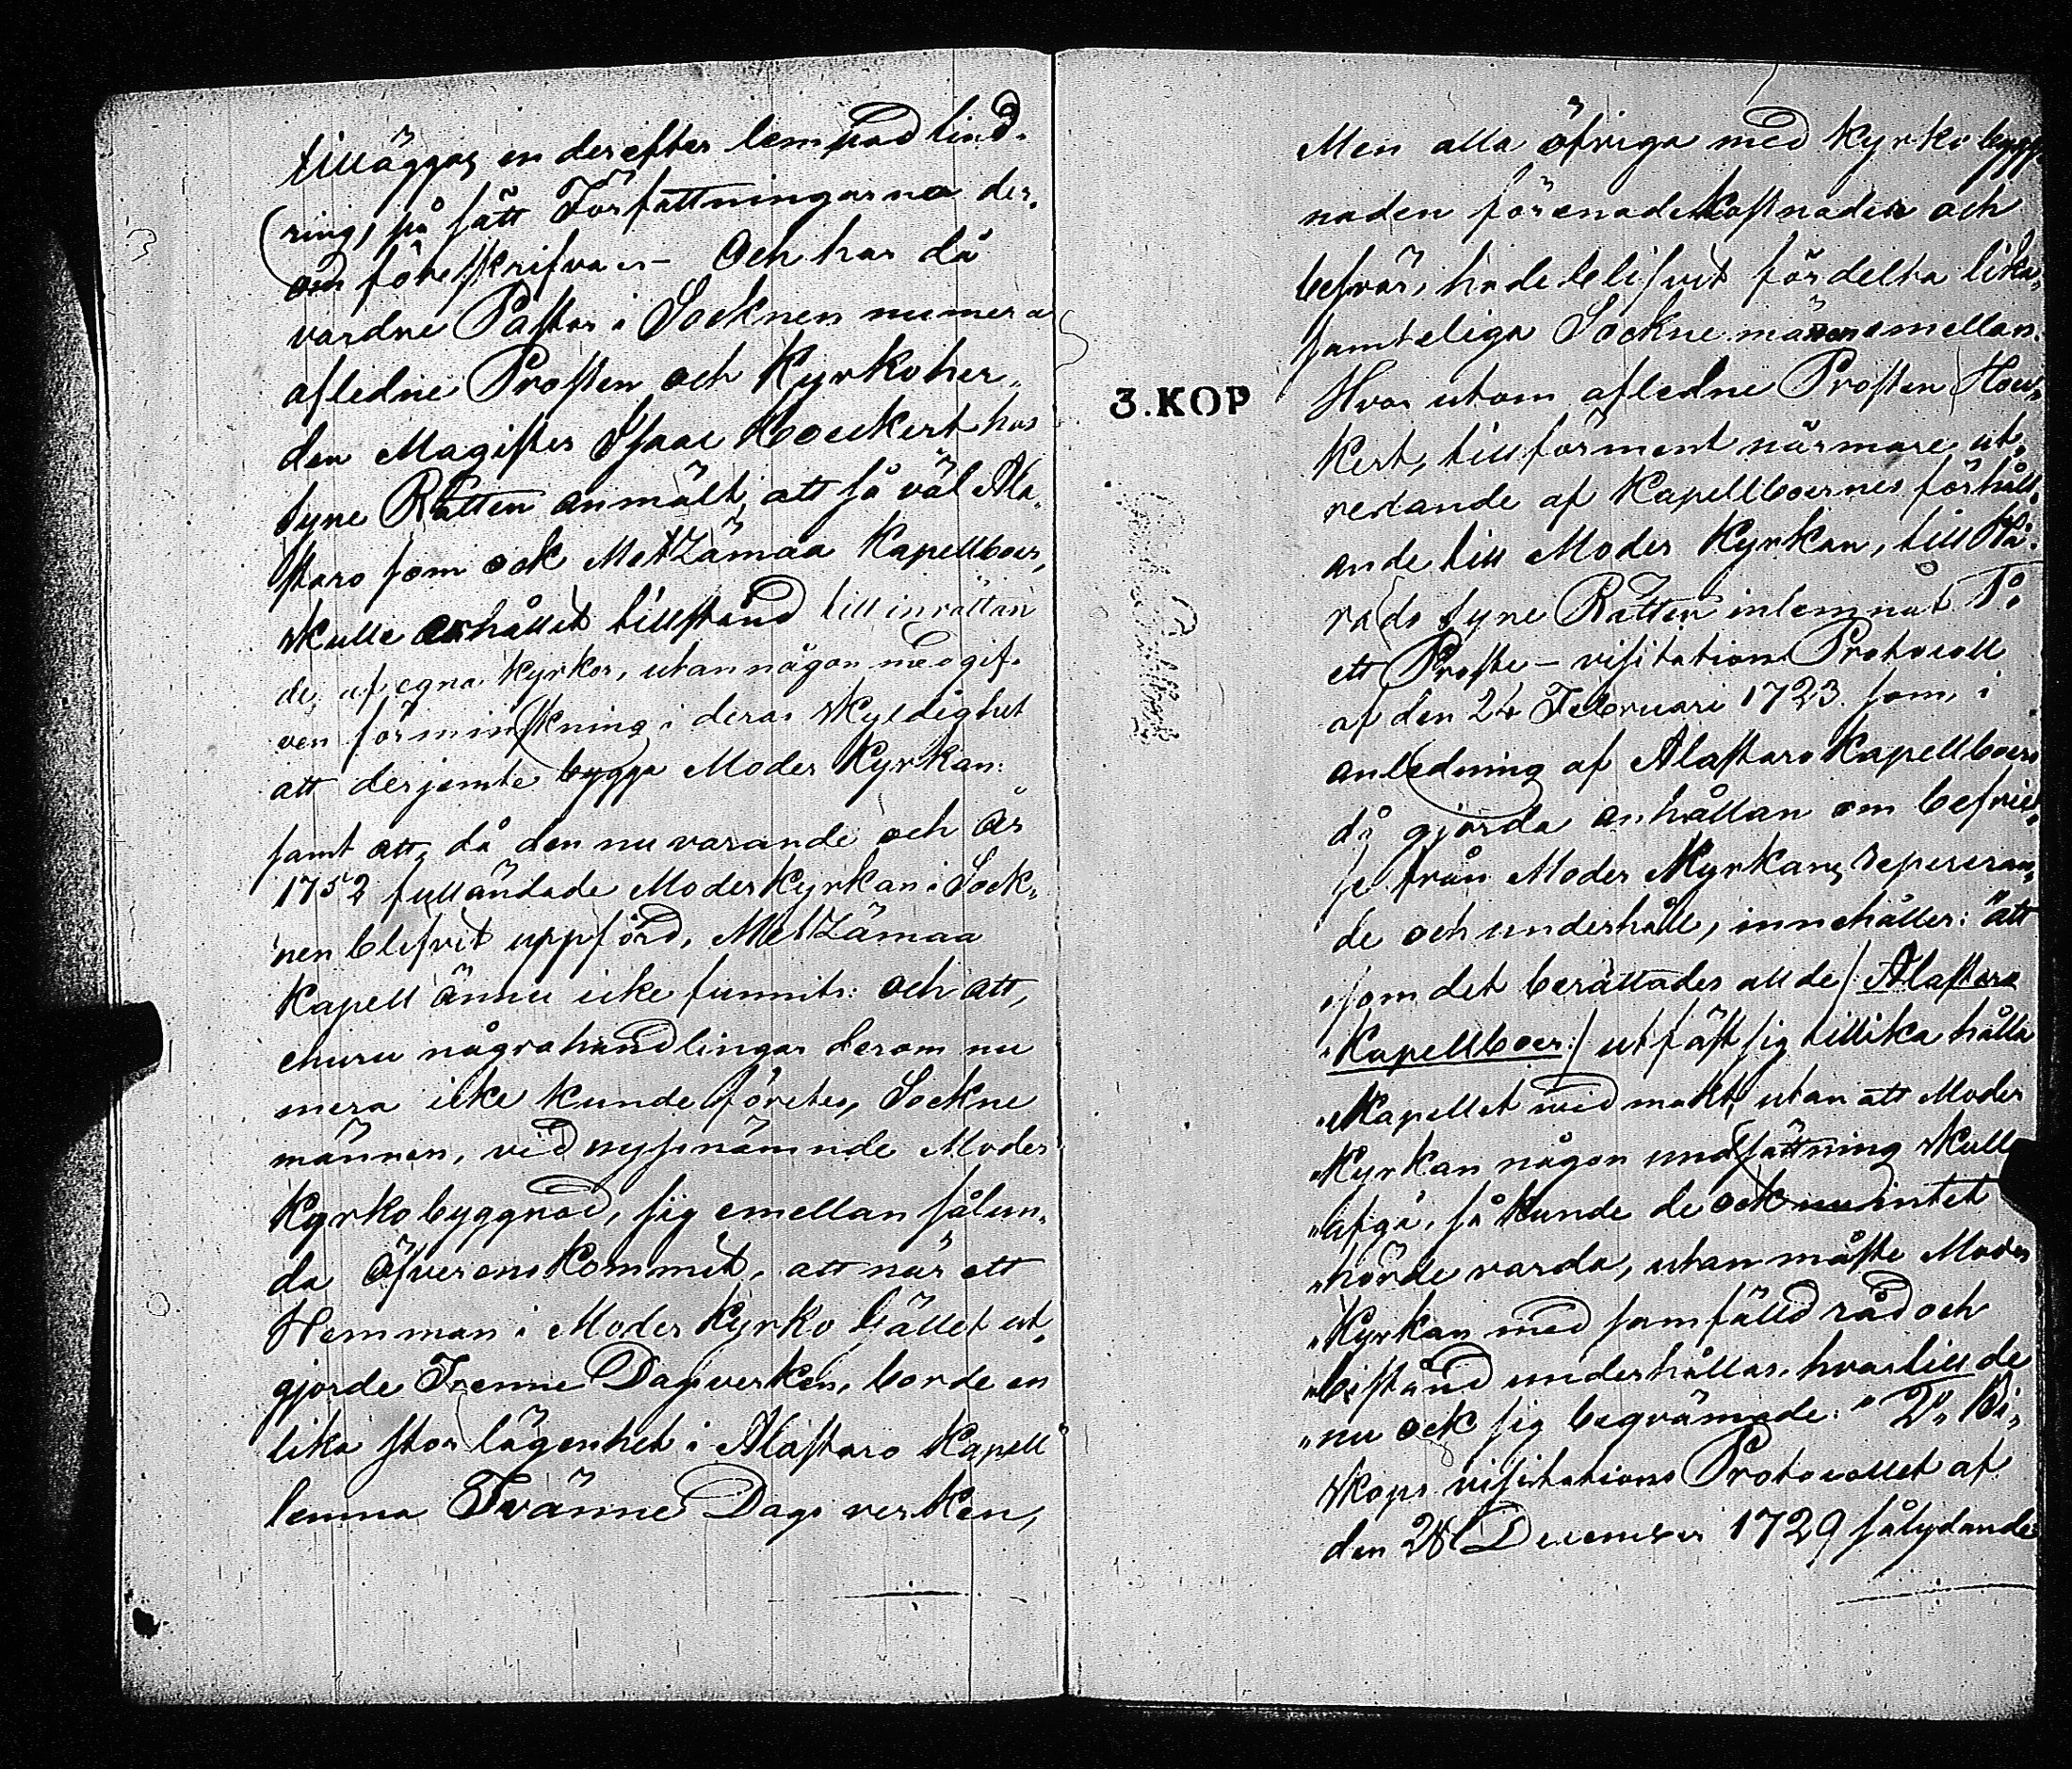 tilläggas en derefter lempad lind-
ring, på sätt Författningarna der-
om föreskrifva – Och har då
vardne Pastor i Socknen numera
afledne Prosten och Kyrkoher-
den Magister Isaac Bouckert hos
Syne Rätten anmält, att så väl Ala-
staro som ock Metzämaa Kapellboer,
skulle erhållit tillstånd till inrättan
de, af egna Kyrkor, utan någon medgif-
ven förminskning i deras skyldighet
att derjemte bygga Moder Kyrkan:
samt att, då den nu varande och år
1752 fulländade Moderkyrkan i Sock-
nen blifvit uppförd, Metzämaa
Kapell ännu icke funnits: och att,
ehuru några handlingar derom nu
mera icke kunde företes, Sockne
männen, vid nyssnämnde Moder
Kyrkobyggnad, sig emellan sålun-
da öfverenskommit, att när ett
Hemman i Moder Kyrko Gället ut-
gjorde Trenne Dagsverken, borde en
lika stor lägenhet i Alastaro Kapell
lemna Tvänne Dags verken,
Men alla öfriga med Kyrko bygg-
naden förenade Kostnader och
besvär, hade blifvit fördelta lika
samteliga Socknemännen emellan.
Hvar utom afledne Prosten
kert, till förment närmare ut-
redande af Kapellboernes förhåll-
ande till Moder Kyrkan, till Hä-
rads Syne Rätten inlemnat 1:o
ett Proste – visitations Protocoll
af den 24 Februari 1723. som, i
anledning af Alastaro Kapellboers
då gjorda anhållan om befriel-
se från Moder Kyrkans repareran-
de och underhåll, innehåller: "att
"som det berättades att de /: Alastaro
"Kapellboer :/ utfäst sig tillika hålla
"Kapellet vid makt, utan att Moder
"Kyrkan någon undsättning skulle
"afgå, så kunde de ock nu intet
"hörde varda, utan måste Moder
"Kyrkan med samfälld råd och
"bistånd underhållas, hvartill de
"nu ock sig beqvämade." 2:o Bi-
skops visitations Protocollet af
den December 1729 sålydande
3.KOP